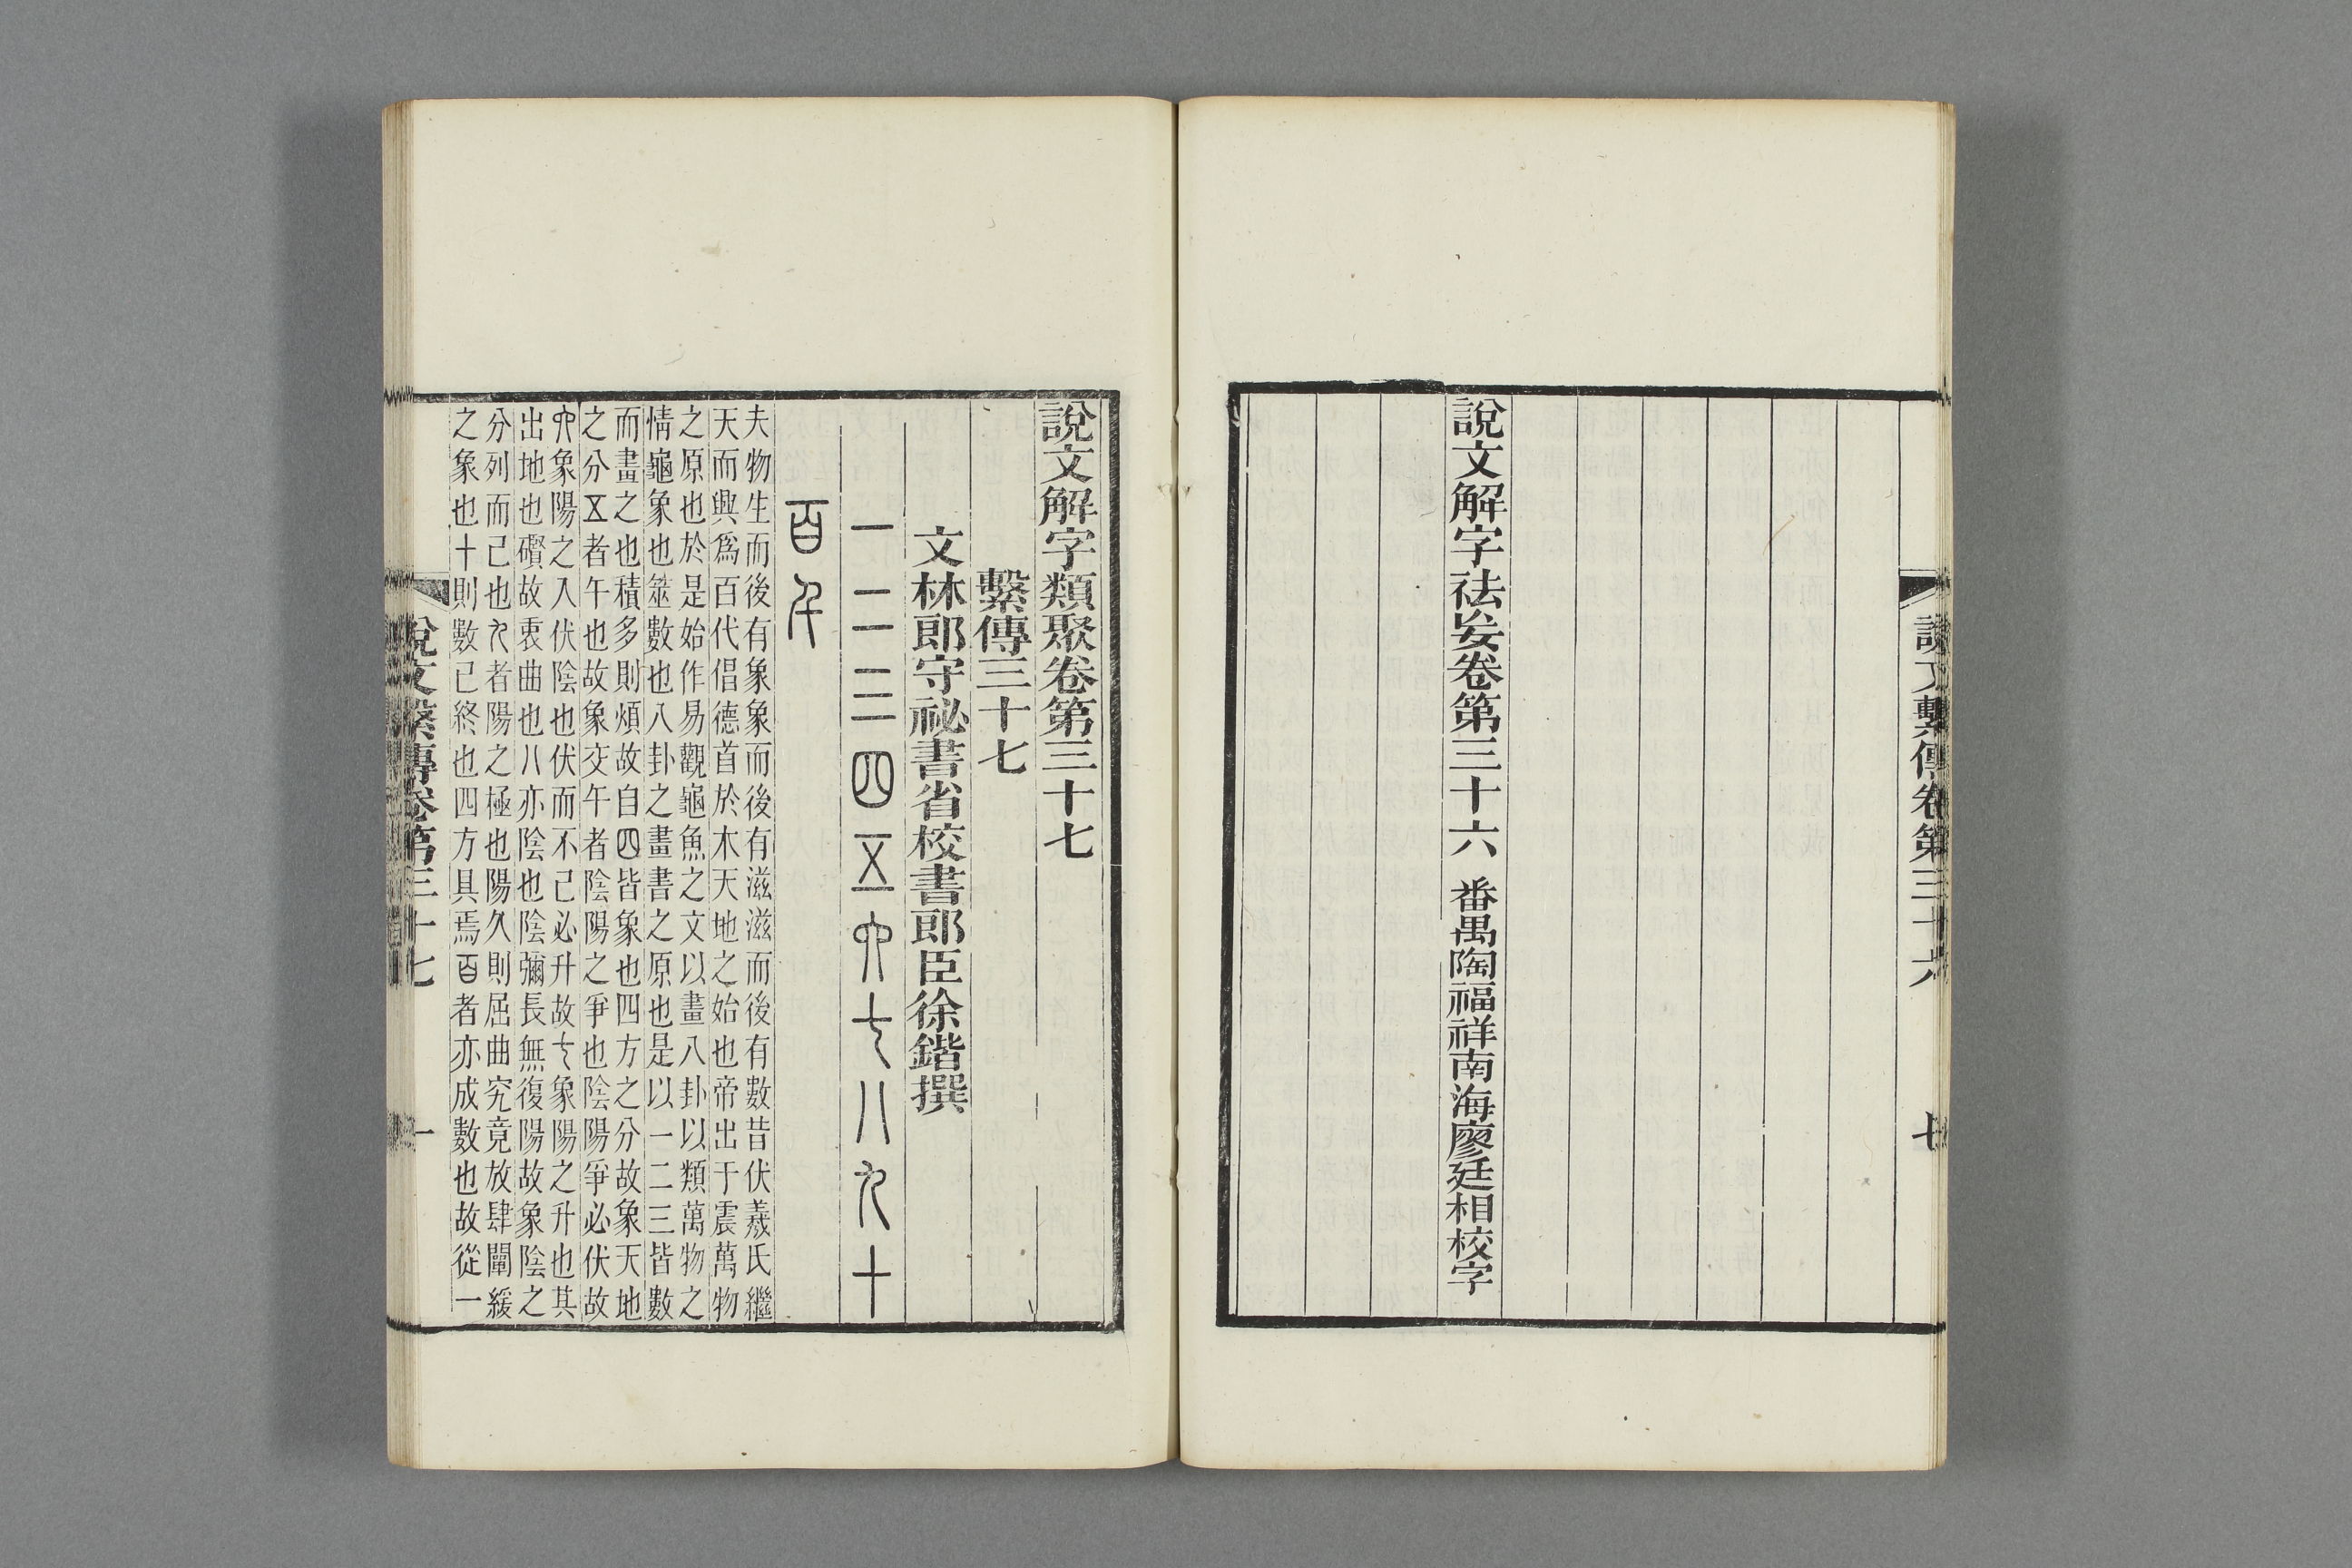 說文繫傳卷第三十六
七
說文解字袪妄卷第三十六 番禺陶福祥南海廖廷相校字
說文解字類聚卷第三十七
繫傳三十七
文林郎守祕書省校書郎臣徐鍇撰
一二三四五六七八九十
百千
夫物生而後有象象而後有滋滋而後有數昔伏羲氏繼
天而興爲百代倡德首於木天地之始也帝出于震萬物
之原也於是始作易觀龜魚之文以畫八卦以類萬物之
情龜象也筮數也八卦之畫書之原也是以一二三皆數
而畫之也積多則煩故自四皆象也四方之分故象天地
之分五者午也故象交午者陰陽之爭也陰陽爭必伏故
六象陽之入伏陰也伏而不已必升故七象陽之升也其
出地也礥故衷曲也八亦陰也陰彌長無復陽故象陰之
分列而已也九者陽之極也陽久則屈曲究竟放肆闡緩
之象也十則數已終也四方具焉百者亦成數也故從一
說文繫傳卷第三十七
一